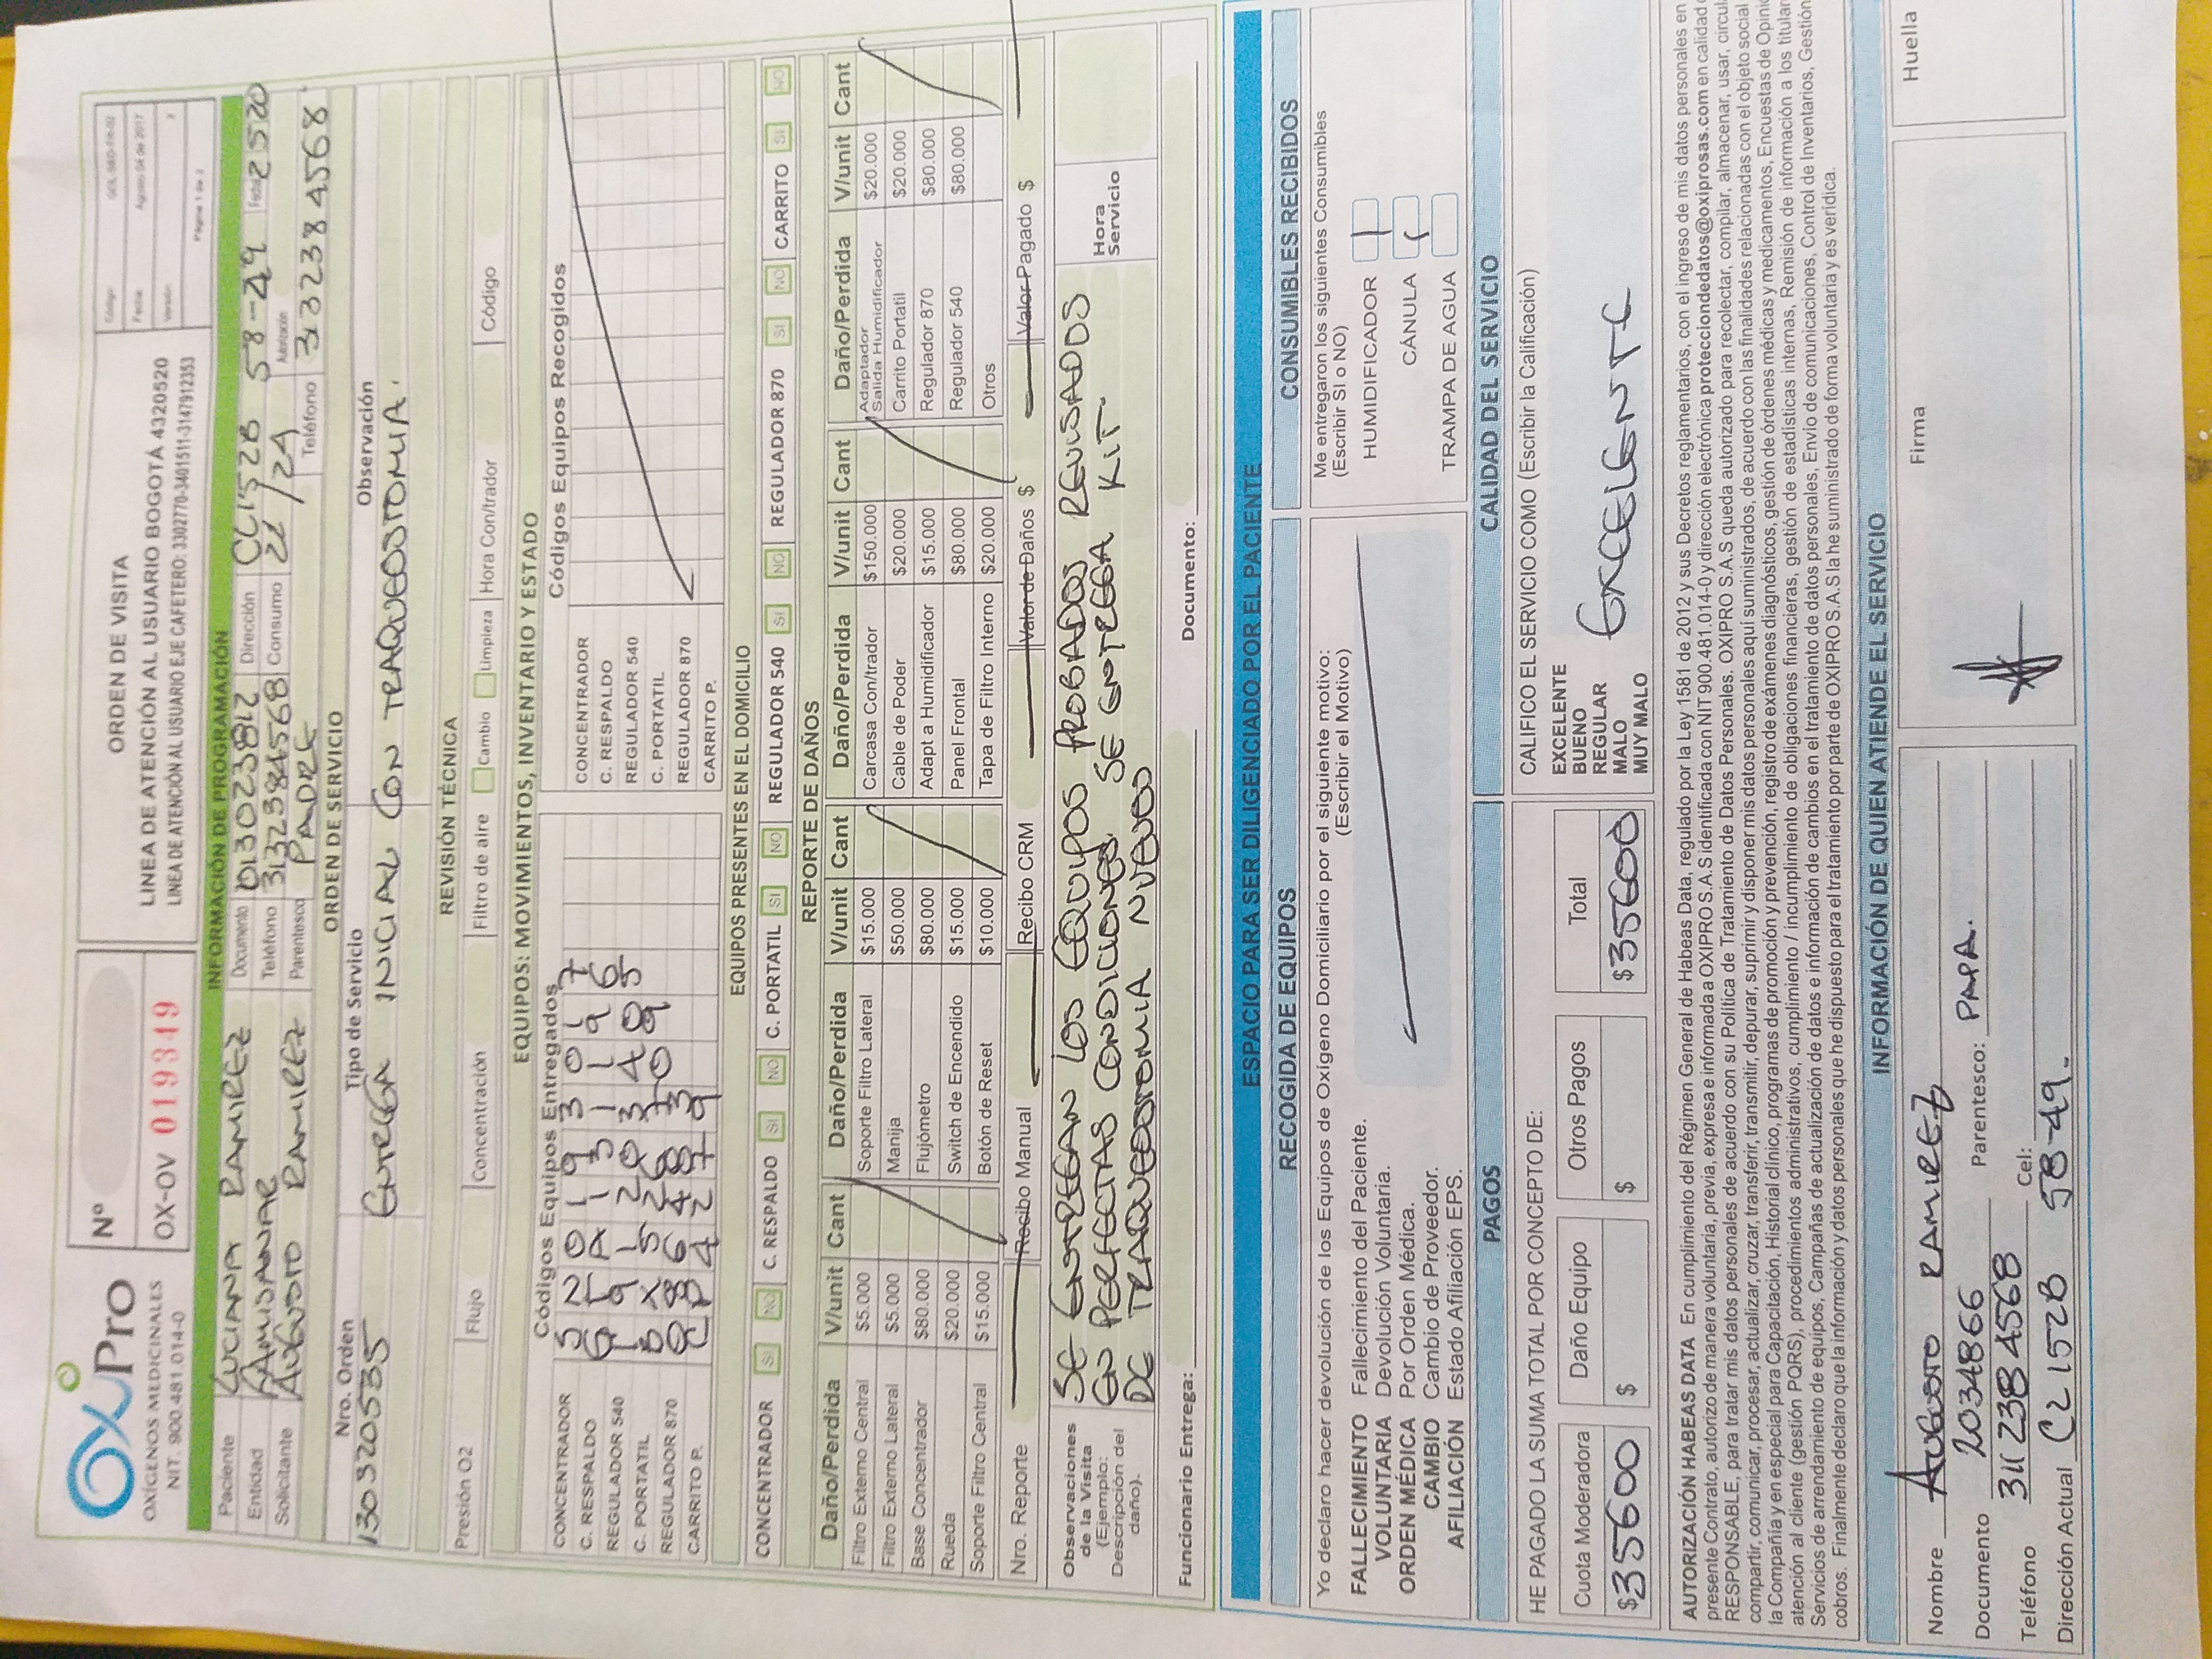 OxiPro
OXÍGENOS MEDICINALES
NIT. 900.481.014-0
Nº
OX-OV 019349
ORDEN DE VISITA
LINEA DE ATENCIÓN AL USUARIO BOGOTÁ 4320520
LINEA DE ATENCIÓN AL USUARIO EJE CAFETERO: 3302770-3401511-3147912353
Código
Fecha Agosto 04 de 2017
Versión 2
Página 1 de 2
INFORMACIÓN DE PROGRAMACIÓN
Paciente LUCIANA RAMIREZ Documento 013023812 Dirección CL152B 58-49 Fecha 2520
Entidad FAMISANAR Teléfono 3132384568 Consumo 2L/24 Autorización
Solicitante AUGUSTO RAMIREZ Parentesco PADRE Teléfono 3132384568
ORDEN DE SERVICIO
Nro. Orden Tipo de Servicio Observación
130320535 ENTREGA INICIAL CON TRAQUEOSTOMIA.
REVISIÓN TÉCNICA
Presión O2 Flujo Concentración Filtro de aire Cambio Limpieza Hora Con/trador Código
EQUIPOS: MOVIMIENTOS, INVENTARIO Y ESTADO
Códigos Equipos Entregados Códigos Equipos Recogidos
CONCENTRADOR CONCENTRADOR
C. RESPALDO C. RESPALDO
REGULADOR 540 REGULADOR 540
C. PORTATIL C. PORTATIL
REGULADOR 870 REGULADOR 870
CARRITO P. CARRITO P.
EQUIPOS PRESENTES EN EL DOMICILIO
CONCENTRADOR SI NO C. RESPALDO SI NO C. PORTATIL SI NO REGULADOR 540 SI NO REGULADOR 870 SI NO CARRITO SI NO
REPORTE DE DAÑOS
Daño/Perdida V/unit Cant Daño/Perdida V/unit Cant Daño/Perdida V/unit Cant Daño/Perdida V/unit Cant
Filtro Externo Central $5.000 Soporte Filtro Lateral $15.000 Carcasa Con/trador $150.000 Adaptador Salida Humidificador $20.000
Filtro Externo Lateral $5.000 Manija $50.000 Cable de Poder $20.000 Carrito Portatil $20.000
Base Concentrador $80.000 Flujómetro $80.000 Adapt a Humidificador $15.000 Regulador 870 $80.000
Rueda $20.000 Switch de Encendido $15.000 Panel Frontal $80.000 Regulador 540 $80.000
Soporte Filtro Central $15.000 Botón de Reset $10.000 Tapa de Filtro Interno $20.000 Otros
Nro. Reporte Recibo Manual Recibo CRM Valor de Daños $ Valor Pagado $
Observaciones de la Visita (Ejemplo: Descripción del daño).
SE ENTREGAN LOS EQUIPOS PROBADOS REVISADOS
EN PERFECTAS CONDICIONES. SE ENTREGA KIT.
DE TRAQUEOSTOMIA NUEVO
Hora Servicio
Funcionario Entrega: Documento:
ESPACIO PARA SER DILIGENCIADO POR EL PACIENTE
RECOGIDA DE EQUIPOS
Yo declaro hacer devolución de los Equipos de Oxígeno Domiciliario por el siguiente motivo:
(Escribir el Motivo)
FALLECIMIENTO Fallecimiento del Paciente.
VOLUNTARIA Devolución Voluntaria.
ORDEN MÉDICA Por Orden Médica.
CAMBIO Cambio de Proveedor.
AFILIACIÓN Estado Afiliación EPS.
CONSUMIBLES RECIBIDOS
Me entregaron los siguientes Consumibles
(Escribir SI o NO)
HUMIDIFICADOR 1
CÁNULA 1
TRAMPA DE AGUA
PAGOS
HE PAGADO LA SUMA TOTAL POR CONCEPTO DE:
Cuota Moderadora Daño Equipo Otros Pagos Total
$35600 $ $ $35600
CALIDAD DEL SERVICIO
CALIFICO EL SERVICIO COMO (Escribir la Calificación)
EXCELENTE
BUENO
REGULAR
MALO
MUY MALO
EXCELENTE
AUTORIZACIÓN HABEAS DATA En cumplimiento del Régimen General de Habeas Data, regulado por la Ley 1581 de 2012 y sus Decretos reglamentarios, con el ingreso de mis datos personales en
presente Contrato, autorizo de manera voluntaria, previa, expresa e informada a OXIPRO S.A.S identificada con NIT 900.481.014-0 y dirección electrónica protecciondedatos@oxiprosas.com en calidad
RESPONSABLE, para tratar mis datos personales de acuerdo con su Política de Tratamiento de Datos Personales. OXIPRO S.A.S queda autorizado para recolectar, compilar, almacenar, usar, circul
compartir, comunicar, procesar, actualizar, cruzar, transferir, transmitir, depurar, suprimir y disponer mis datos personales aquí suministrados, de acuerdo con las finalidades relacionadas con el objeto social
la Compañía y en especial para Capacitación, Historial clínico, programas de promoción y prevención, registro de exámenes diagnósticos, gestión de órdenes médicas y medicamentos, Encuestas de Opini
atención al cliente (gestión PQRS), procedimientos administrativos, cumplimiento / incumplimiento de obligaciones financieras, gestión de estadísticas internas, Remisión de información a los titular
Servicios de arrendamiento de equipos, Campañas de actualización de datos e información de cambios en el tratamiento de datos personales, Envío de comunicaciones, Control de Inventarios, Gestión
cobros. Finalmente declaro que la información y datos personales que he dispuesto para el tratamiento por parte de OXIPRO S.A.S la he suministrado de forma voluntaria y es verídica.
INFORMACIÓN DE QUIEN ATIENDE EL SERVICIO
Nombre AUGUSTO RAMIREZ
Documento 2034866 Parentesco: PAPA.
Teléfono 311 238 4568 Cel:
Dirección Actual CL 152B 58-49.
Firma
Huella